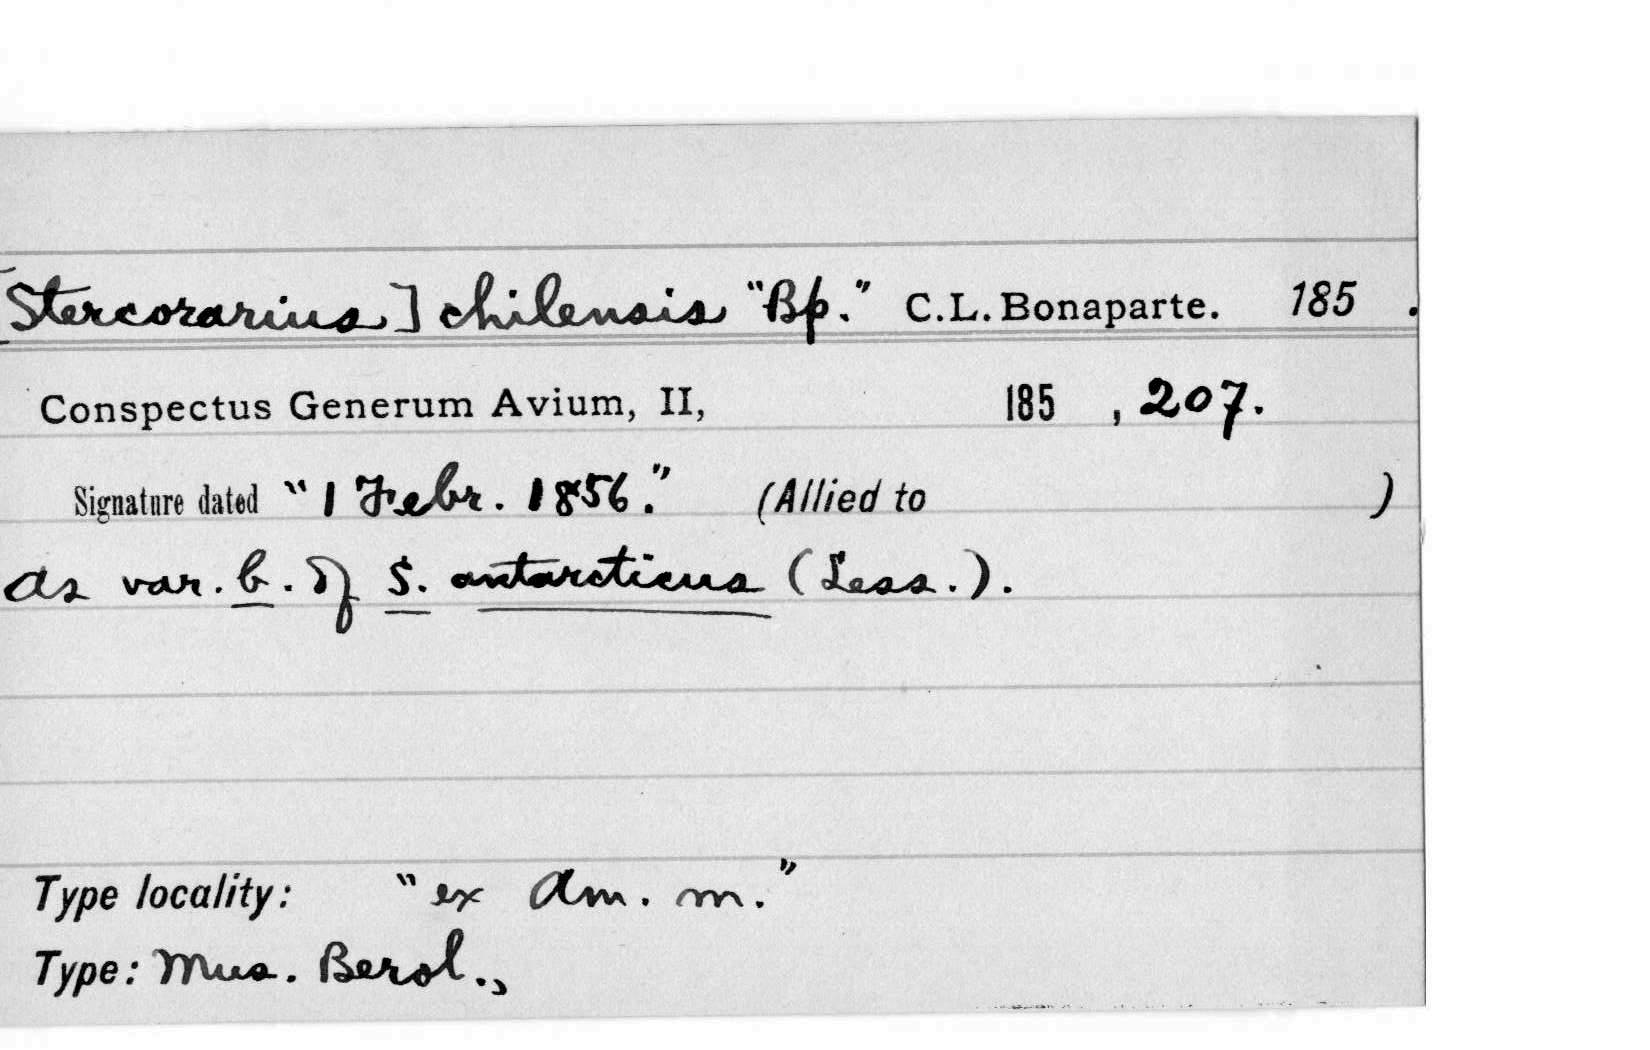 [Stercorarius] chilensis "Bp." C.L. Bonaparte. 185 .
Conspectus Generum Avium, II, 185 , 207.
Signature dated "1 Febr. 1856." (Allied to )
as var. b. of S. antarcticus (Less.).
Type locality: "ex Am. m."
Type: Mus. Berol.,